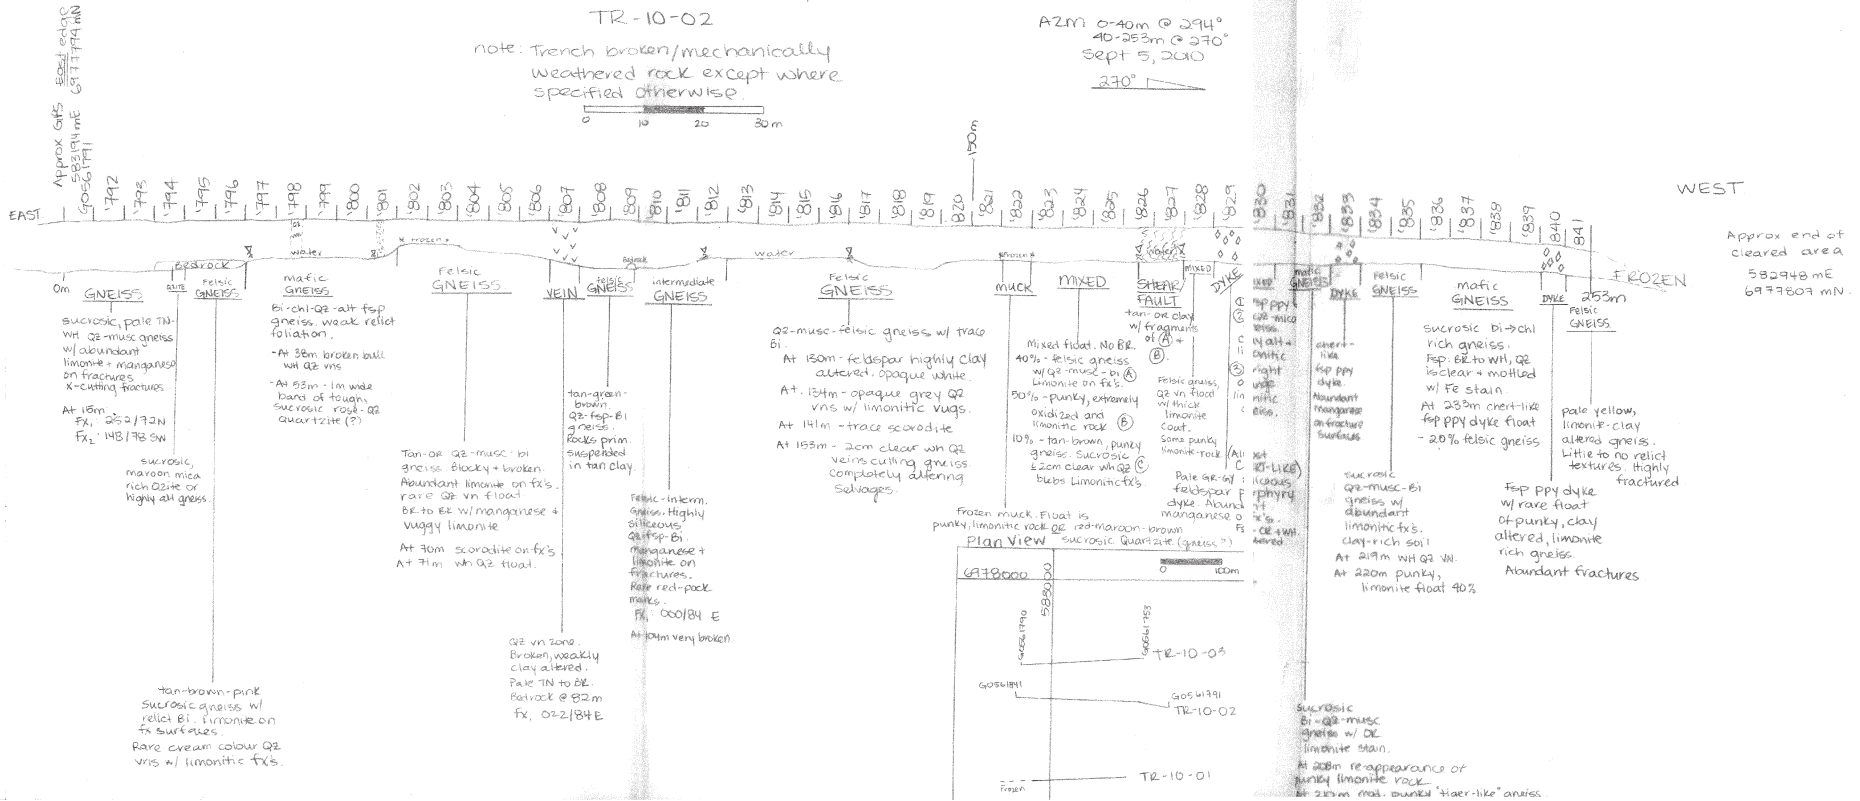 TR-10-02
note: Trench broken/mechanically
weathered rock except where
specified otherwise.
0 10 20 30m
AZM 0-40m @ 294°
40-253m @ 270°
Sept 5, 2010
270°
Approx GPS East edge
583194mE 6977794mN
EAST
G0561791
'792
'793
'794
'795
'796
'797
'798
'799
'800
'801
'802
'803
'804
'805
'806
'807
'808
'809
'810
'811
'812
'813
'814
'815
'816
'817
'818
'819
'820
150m
'821
'822
'823
'824
'825
'826
'827
'828
'829
'830
'831
'832
'833
'834
'835
'836
'837
'838
'839
'840
'841
WEST
Approx end of
cleared area
582948mE
6977807mN
FROZEN
253m
Bedrock
water
Frozen
Bedrock
water
Frozen
0m
GNEISS
sucrosic, pale TN-
WH QZ-musc gneiss
w/ abundant
limonite + manganese
on fractures
x-cutting fractures
At 15m
Fx, 252/72N
Fx2 148/78 SW
QZITE
sucrosic,
maroon mica
rich Qzite or
highly alt gneiss
Felsic
GNEISS
tan-brown-pink
sucrosic gneiss w/
relict Bi. limonite on
fx surfaces.
Rare cream colour QZ
vns w/ limonitic fx's.
mafic
GNEISS
Bi-chl-QZ-alt fsp
gneiss. weak relict
foliation.
-At 38m broken bull
wh QZ vns
-At 53m - 1m wide
band of tough,
sucrosic rose-QZ
Quartzite(?)
Felsic
GNEISS
Tan-OR QZ-musc-bi
gneiss. Blocky + broken.
Abundant limonite on fx's.
rare QZ vn float
BR to BK w/ manganese +
vuggy limonite
At 70m scorodite on fx's
At 71m wh QZ float.
VEIN
QZ vn zone.
Broken, weakly
clay altered.
Pale TN to BR.
Bedrock @ 82m
fx, 022/84E
felsic
GNEISS
tan-green-
brown
QZ-fsp-Bi
gneiss.
Rocks prim.
suspended
in tan clay.
intermediate
GNEISS
Felsic-interm.
Gneiss. Highly
siliceous
QZ-fsp-Bi.
manganese +
limonite on
fractures.
Rare red-pock
marks.
Fx, 000/84 E
At 104m very broken
Felsic
GNEISS
QZ-musc-felsic gneiss w/ trace
Bi.
At 130m - feldspar highly clay
altered. opaque white.
At 134m - opaque grey QZ
vns w/ limonitic vugs.
At 141m - trace scorodite
At 153m - 2cm clear wh QZ
veins cutting gneiss.
completely altering
selvages.
muck
Frozen muck. Float is
punky, limonitic rock OR red-maroon-brown
sucrosic Quartzite (gneiss?)
MIXED
Mixed float. No BR.
40% - felsic gneiss
w/ QZ-musc-bi (A)
Limonite on fx's.
50% - punky, extremely
oxidized and
limonitic rock (B)
10% - tan-brown, punky
gneiss. sucrosic
≤2cm clear wh QZ (C)
blebs Limonitic fx's.
SHEAR
FAULT
tan-OR clay
w/ fragments
of (A) +
(B).
MIXED
Felsic gneiss,
QZ vn float
w/ thick
limonite
coat.
Some punky
limonite-rock
DYKE
Pale GR-GY
feldspar
dyke.
manganese
mafic
GNEISS
sucrosic
Bi-QZ-musc
gneiss w/ OR
limonite stain.
At 208m re-appearance of
punky limonite rock
DYKE
chert-
like
fsp ppy
dyke.
Abundant
manganese
on fracture
surfaces
Felsic
GNEISS
sucrosic
QZ-musc-Bi
gneiss w/
abundant
limonitic fx's.
clay-rich soil
At 219m WH QZ VN.
At 220m punky,
limonite float 40%
mafic
GNEISS
sucrosic bi→chl
rich gneiss.
Fsp: BR to WH, QZ
is clear + mottled
w/ Fe stain.
At 233m chert-like
fsp ppy dyke float
- 20% felsic gneiss
DYKE
Fsp ppy dyke
w/ rare float
of punky, clay
altered, limonite
rich gneiss.
Abundant fractures
Felsic
GNEISS
pale yellow,
limonite-clay
altered gneiss.
Little to no relict
textures. Highly
fractured
Plan View
0 100m
6978000
583000
G0561790
TR-10-03
G0561841
G0561791
TR-10-02
TR-10-01
Frozen